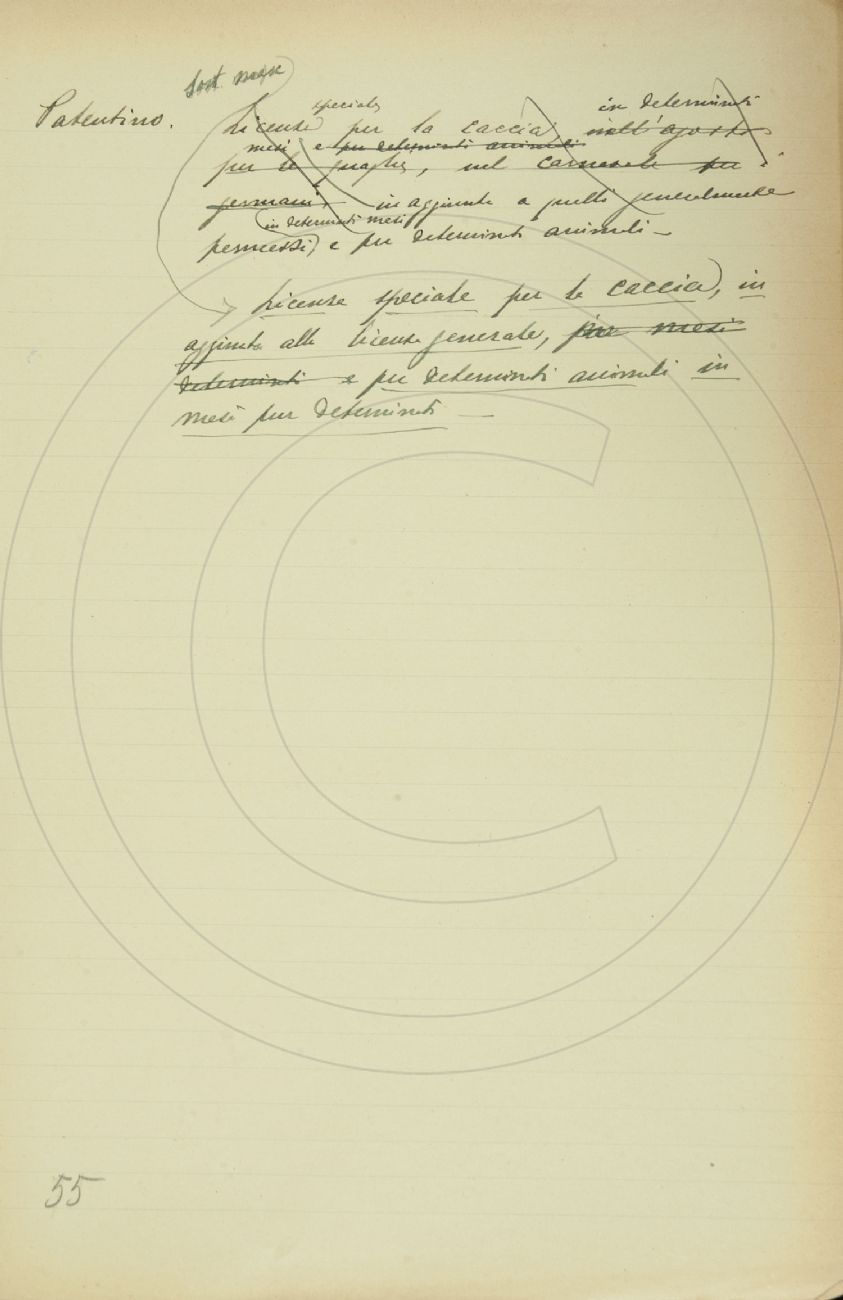 Sost. masc.
Patentino.
speciale, in determinati
Licenza per la caccia, nell'agosto
mesi e per determinati animali
per le quaglie, nel carnevale per i
germani, in aggiunta a quelli generalmente
in determinati mesi
permessi, e per determinati animali —
Licenza speciale per la caccia, in
aggiunta alla licenza generale, per mesi
determinati e per determinati animali in
mesi pur determinati —
55